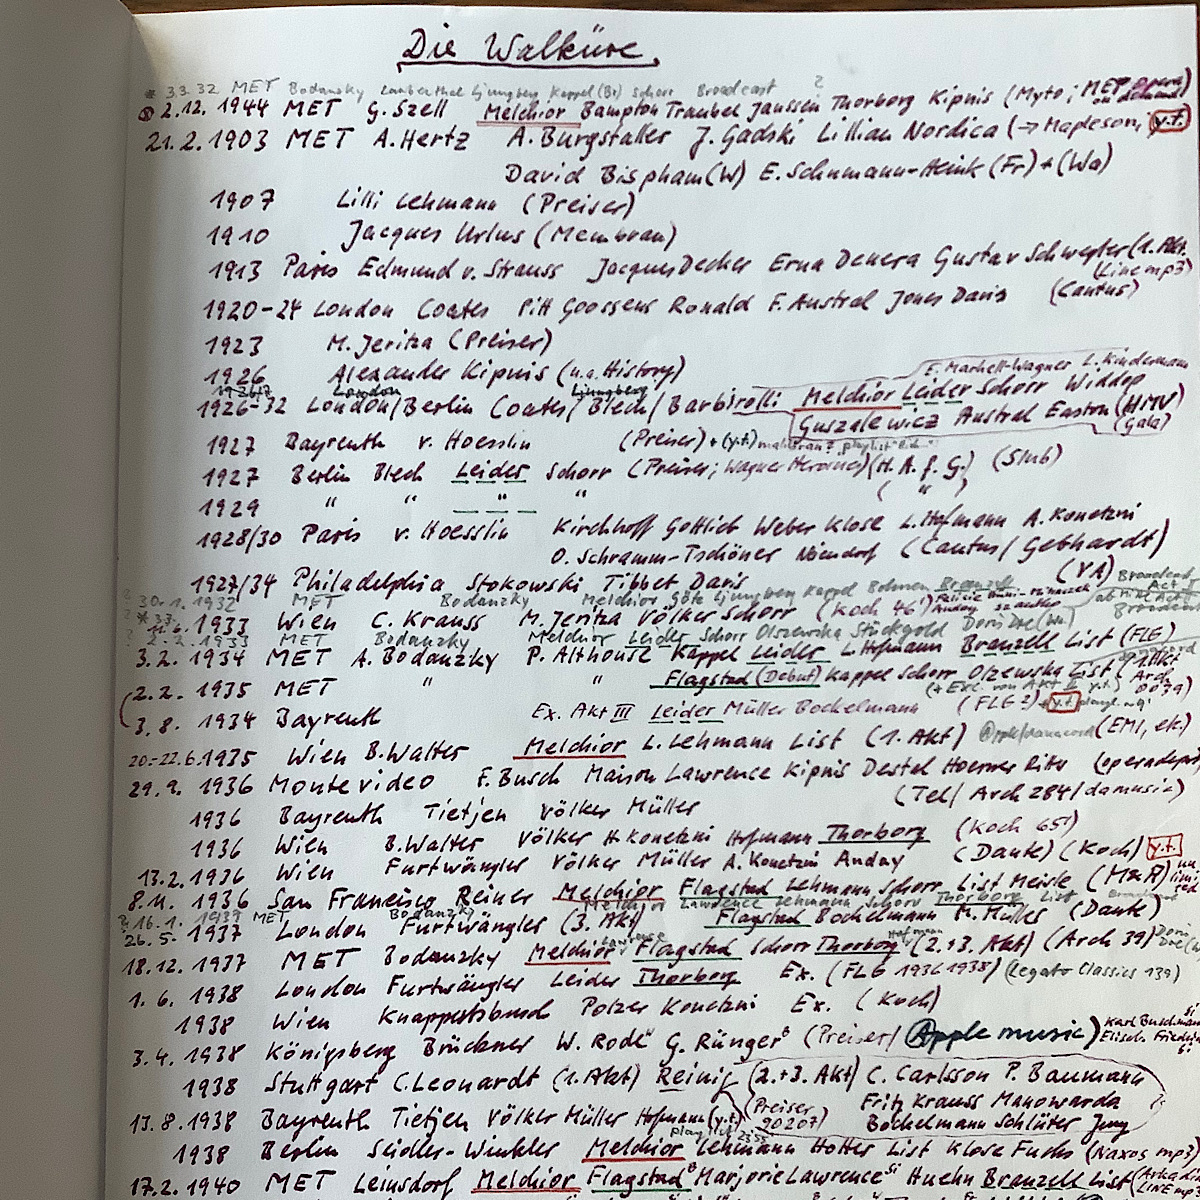 Die Walküre
* 3.3.32 MET Bodanzky Laubenthal Ljungberg Kappel (Br) Schorr Broadcast ?
2.12.1944 MET G. Szell Melchior Bampton Traubel Janssen Thorborg Kipnis (Myto; MET Opera on demand)
21.2.1903 MET A. Hertz A. Burgstaller J. Gadski Lillian Nordica (→ Mapleson, y.t.)
David Bispham (W) E. Schumann-Heink (Fr) + (Wa)
1907 Lilli Lehmann (Preiser)
1910 Jacques Urlus (Membran)
1913 Paris Edmund v. Strauss Jacques Decker Erna Denera Gustav Schwegler (1. Akt.
(Line mp3)
1920-24 London Coates Pitt Goossens Ronald F. Austral Jones Davis (Cantus)
1923 M. Jeritza (Preiser)
1926 Alexander Kipnis (u.a. History)
E. Marhett-Wagner L. Kindermann
London Ljungberg
1926-32 London/Berlin Coates/Blech/Barbirolli Melchior Leider Schorr Widdop
Guszalewicz Austral Easton (HMV)
(Gala)
1927 Bayreuth v. Hoesslin (Preiser) + (y.t.)
1927 Berlin Blech Leider Schorr (Preiser; Wagner Heroines) (H.A.f.G.) (Slub)
1929 " " " " ( " )
1928/30 Paris v. Hoesslin Kirchhoff Gottlieb Weber Klose L. Hofmann A. Konetzni
O. Schramm-Tschöner Niendorf (Cantus/Gebhardt)
1927/34 Philadelphia Stokowski Tibbet Davis (VA)
? 30.1.1932 MET Bodanzky Melchior Göta Ljungberg Kappel Bohnen Branzell
1933 Wien C. Krauss M. Jeritza Völker Schorr (Koch 46)
1933 MET Bodanzky Melchior Leider Schorr Olszewska Stückgold Doris Doe
3.2.1934 MET A. Bodanzky P. Althouse Kappel Leider L. Hofmann Branzell List (FLE)
2.2.1935 MET " " Flagstad (Debut) Kappel Schorr Olszewska List (1. Akt
Arch 0039)
3.8.1934 Bayreuth Ex. Akt III Leider Müller Bockelmann (FLE 2) y.t.
20.-22.6.1935 Wien B. Walter Melchior L. Lehmann List (1. Akt) (EMI, etc)
29.9.1936 Montevideo F. Busch Maison Lawrence Kipnis Destal Hoerner Ritu
(Tel/ Arch 284/damusic)
1936 Bayreuth Tietjen Völker Müller
1936 Wien B. Walter Völker H. Konetzni Hofmann Thorborg (Koch 651)
13.2.1936 Wien Furtwängler Völker Müller A. Konetzni Anday (Dante) (Koch) y.t.
8.11.1936 San Francisco Reiner Melchior Flagstad Lehmann Schorr List Meisle (M&A)
? 16.1.1937 MET Bodanzky Melchior Lawrence Lehmann Schorr Thorborg List
26.5.1937 London Furtwängler (3. Akt) Flagstad Bockelmann M. Müller (Dante)
18.12.1937 MET Bodanzky Melchior Lawrence Flagstad Schorr Thorborg Hofmann (2.+3. Akt) (Arch 39)
1.6.1938 London Furtwängler Leider Thorborg Ex. (FLE 1936 1938) (Legato Classics 139)
1938 Wien Knappertsbusch Polzer Konetzni Ex. (Koch)
3.4.1938 Königsberg Brückner W. Rode G. Rünger (Preiser/ Apple music) Karl Buschmann
1938 Stuttgart C. Leonardt (1. Akt) Reinig (2.+3. Akt) C. Carlsson P. Baumann
Fritz Krauss Manowarda
13.8.1938 Bayreuth Tietjen Völker Müller Hofmann (y.t.) (Preiser 90207) Bockelmann Schlüter Jung
1938 Berlin Seidler-Winkler Melchior Lehmann Hotter List Klose Fuchs (Naxos mp3)
17.2.1940 MET Leinsdorf Melchior Flagstad Marjorie Lawrence Huehn Branzell List